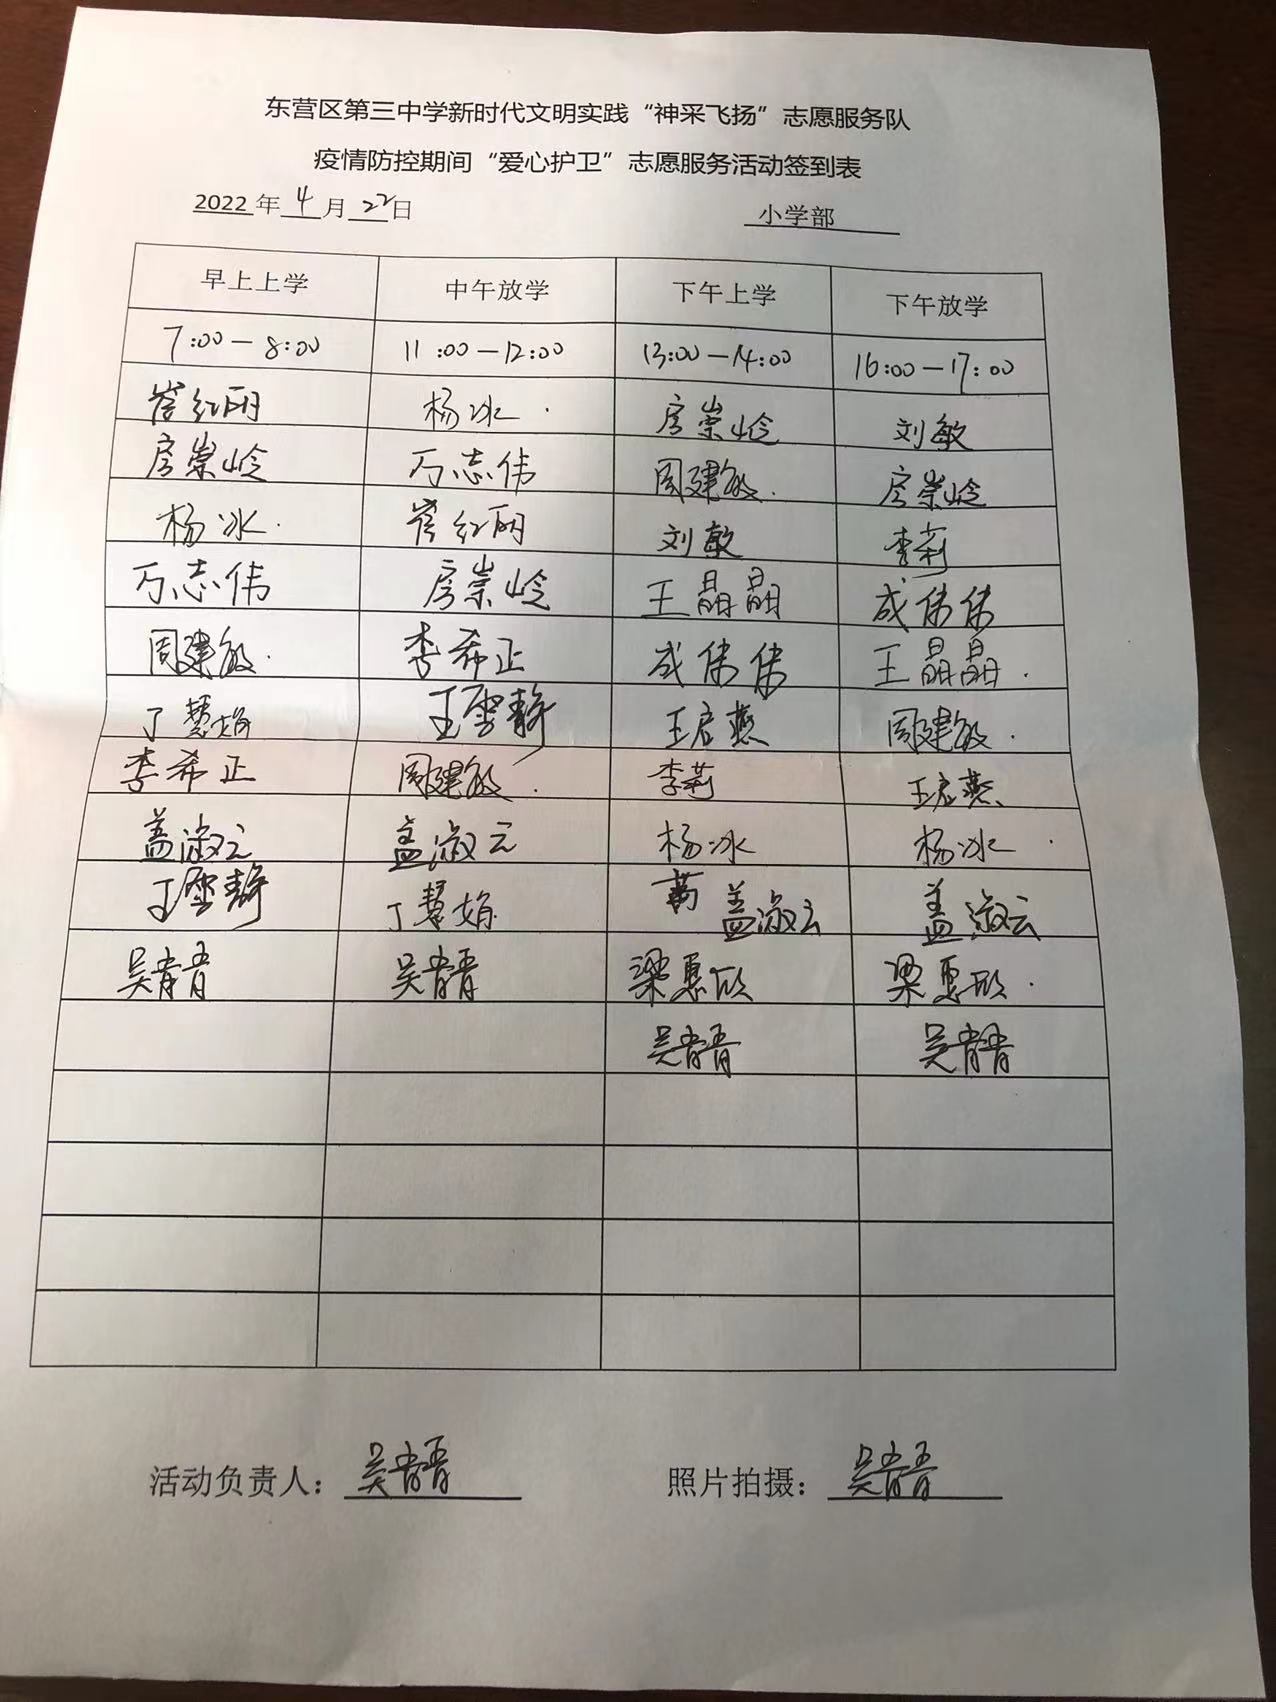 东营区第三中学新时代文明实践“神采飞扬”志愿服务队
疫情防控期间“爱心护卫”志愿服务活动签到表
2022年4月22日 小学部
早上上学 中午放学 下午上学 下午放学
7:00—8:00 11:00—12:00 13:00—14:00 16:00—17:00
崔红丽 杨冰 房崇岭 刘敏
房崇岭 万志伟 周建敏 房崇岭
杨冰 崔红丽 刘敏 李莉
万志伟 房崇岭 王晶晶 成伟伟
周建敏 李希正 成伟伟 王晶晶
丁慧娟 王雪静 王启燕 周建敏
李希正 周建敏 李莉 王启燕
盖淑云 盖淑云 杨冰 杨冰
王雪静 丁慧娟 盖淑云 盖淑云
吴青青 吴青青 梁惠欣 梁惠欣
吴青青 吴青青
活动负责人：吴青青 照片拍摄：吴青青